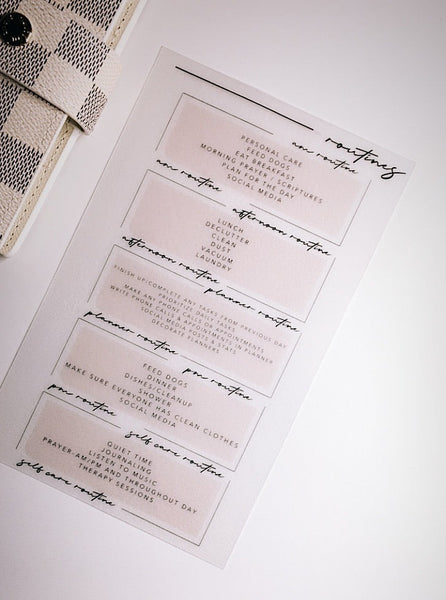 routines
am routine
PERSONAL CARE
FEED DOGS
EAT BREAKFAST
MORNING PRAYER / SCRIPTURES
PLAN FOR THE DAY
SOCIAL MEDIA
am routine
afternoon routine
LUNCH
DECLUTTER
CLEAN
DUST
VACUUM
LAUNDRY
afternoon routine
planner routine
FINISH UP/COMPLETE ANY TASKS FROM PREVIOUS DAY
PRIORITIZE DAILY TASKS
MAKE ANY PHONE CALLS OR APPOINTMENTS
WRITE PHONE CALLS & APPOINTMENTS IN PLANNER
SOCIAL MEDIA POSTS & STATS
DECORATE PLANNERS
planner routine
pm routine
FEED DOGS
DINNER
DISHES/CLEANUP
SHOWER
MAKE SURE EVERYONE HAS CLEAN CLOTHES
SOCIAL MEDIA
pm routine
self care routine
QUIET TIME
JOURNALING
LISTEN TO MUSIC
PRAYER-AM/PM AND THROUGHOUT DAY
THERAPY SESSIONS
self care routine